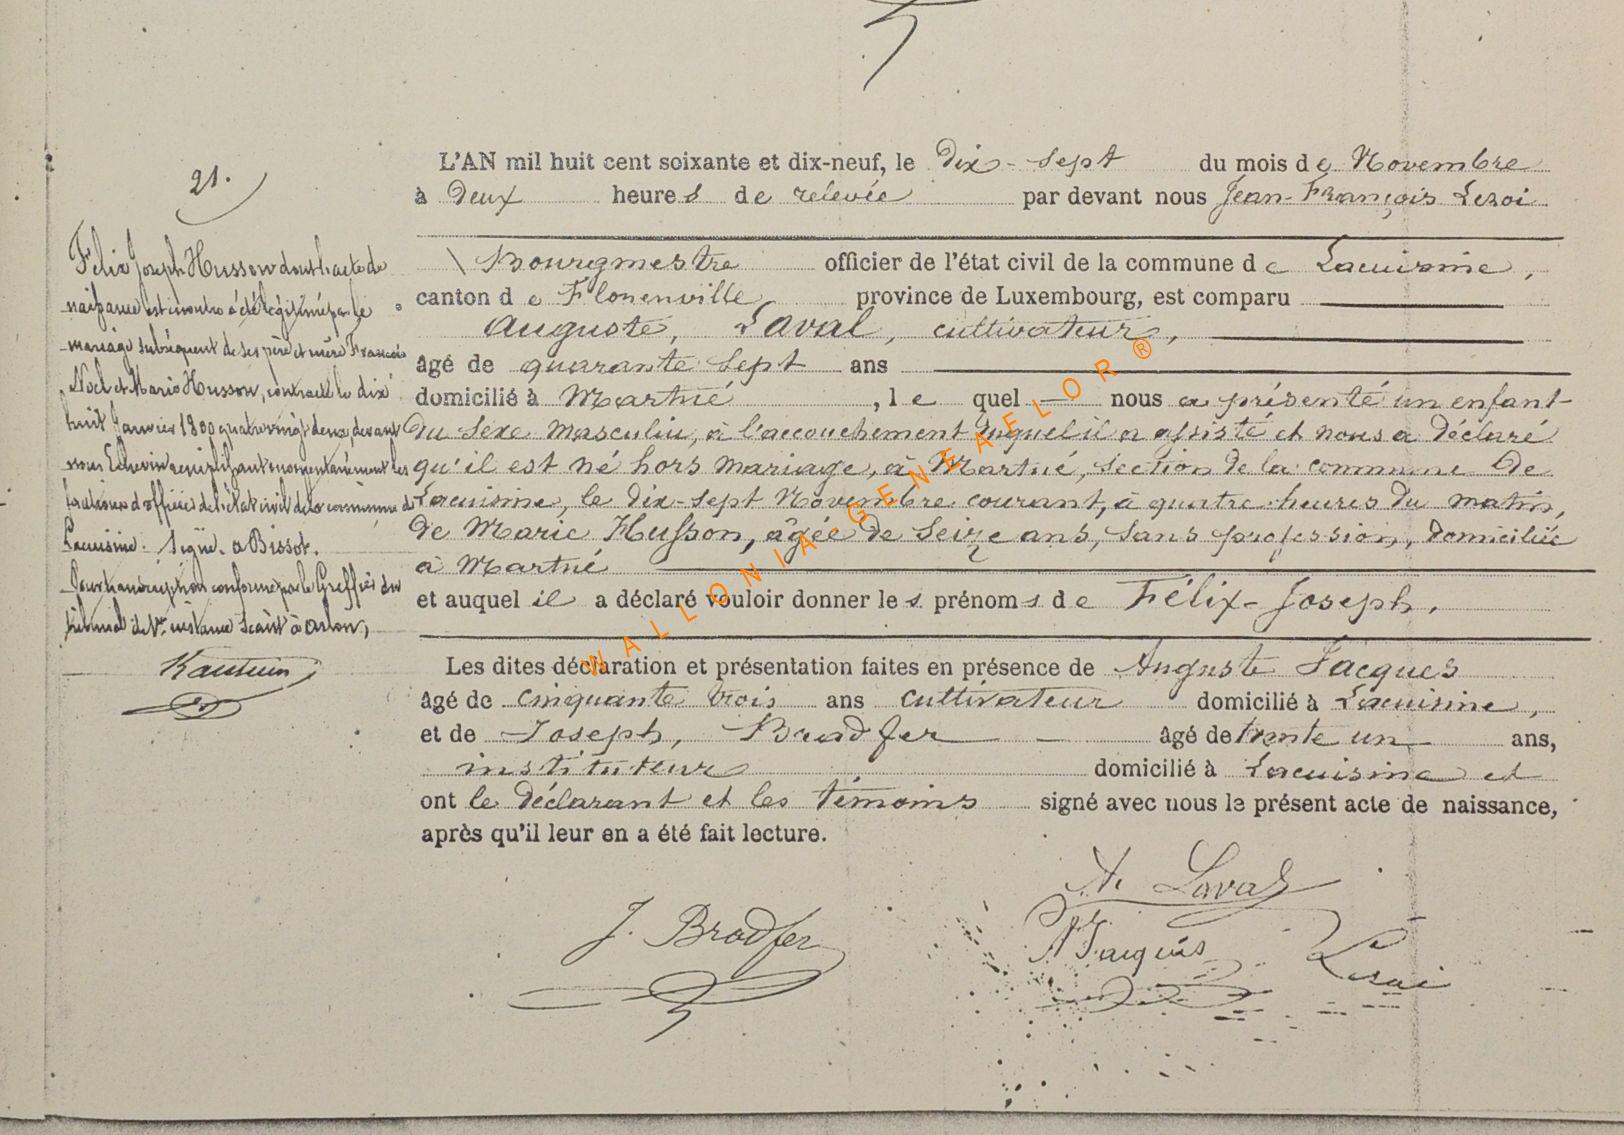 21.
Felix Joseph Husson dont l'acte de
naissance est ci contre a été légitimé par le
mariage subséquent de ses père et mère François
Noel et Marie Husson, contracté le dix
huit Janvier 1800 quatrevingt deux, devant
nous Echevin remplissant momentanément les
fonctions d'officier de l'état civil de la commune de
Lacuisine. Signé. a Bissot.
Pour transcription conforme par le Greffier du
tribunal de 1re instance séant à Arlon,
L'AN mil huit cent soixante et dix-neuf, le Dix-sept du mois de Novembre
à Deux heures de relevée par devant nous Jean-François Leroi
Bourgmestre officier de l'état civil de la commune de Lacuisine,
canton de Florenville province de Luxembourg, est comparu
Auguste, Laval, cultivateur,
âgé de quarante sept ans
domicilié à Martué, le quel nous a présenté un enfant
du sexe masculin, à l'accouchement duquel il a assisté et nous a déclaré
qu'il est né hors mariage, à Martué, section de la commune de
Lacuisine, le dix-sept Novembre courant, à quatre heures du matin,
de Marie Husson, âgée de seize ans, sans profession, domiciliée
à Martué
et auquel il a déclaré vouloir donner les prénoms de Félix-Joseph.
Les dites déclaration et présentation faites en présence de Auguste Jacques
âgé de cinquante trois ans cultivateur domicilié à Lacuisine,
et de Joseph, Bradfer âgé de trente un ans,
instituteur domicilié à Lacuisine et
ont le déclarant et les témoins signé avec nous le présent acte de naissance,
après qu'il leur en a été fait lecture.
A. Laval
J. Bradfer
A Jacques
Leroi
WALLONIA-GENEAFLOR ®